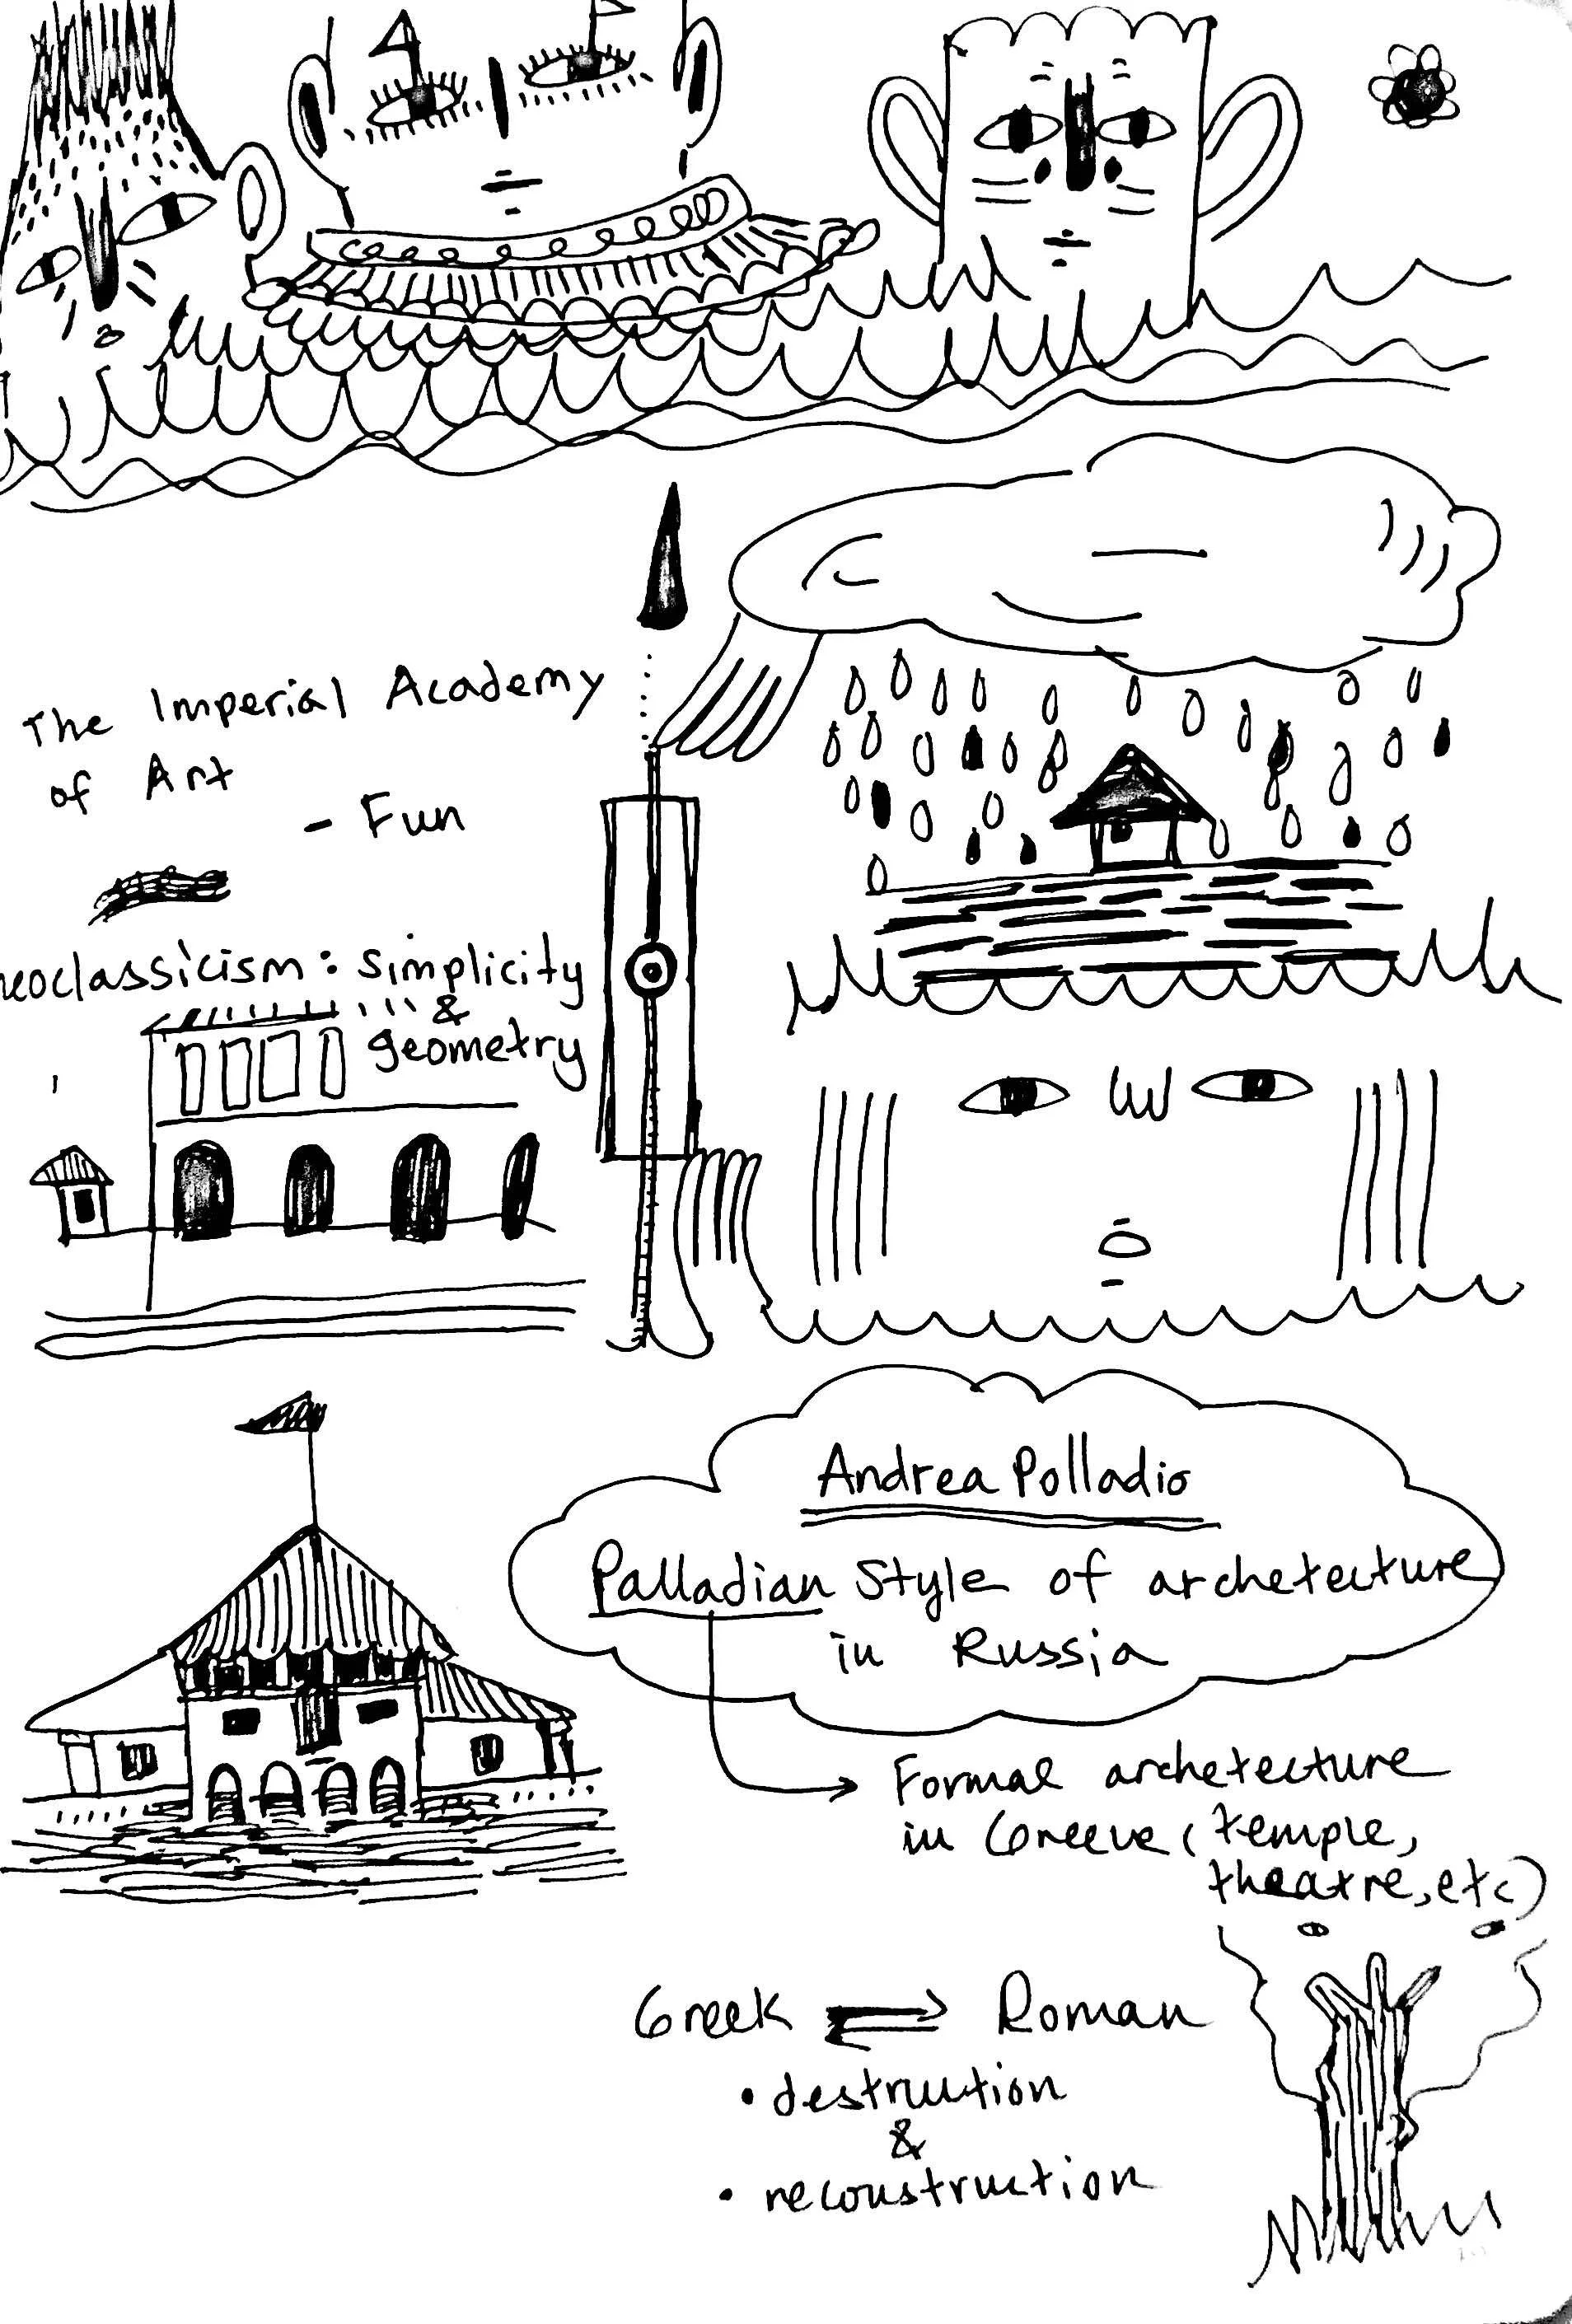 The Imperial Academy
of Art
- Fun
neoclassicism: simplicity
&
geometry
Andrea Polladio
Palladian Style of archetecture
in Russia
Formal archetecture
in Greeve (temple,
theatre, etc)
Greek ⇌ Roman
• destruction
&
• reconstruction